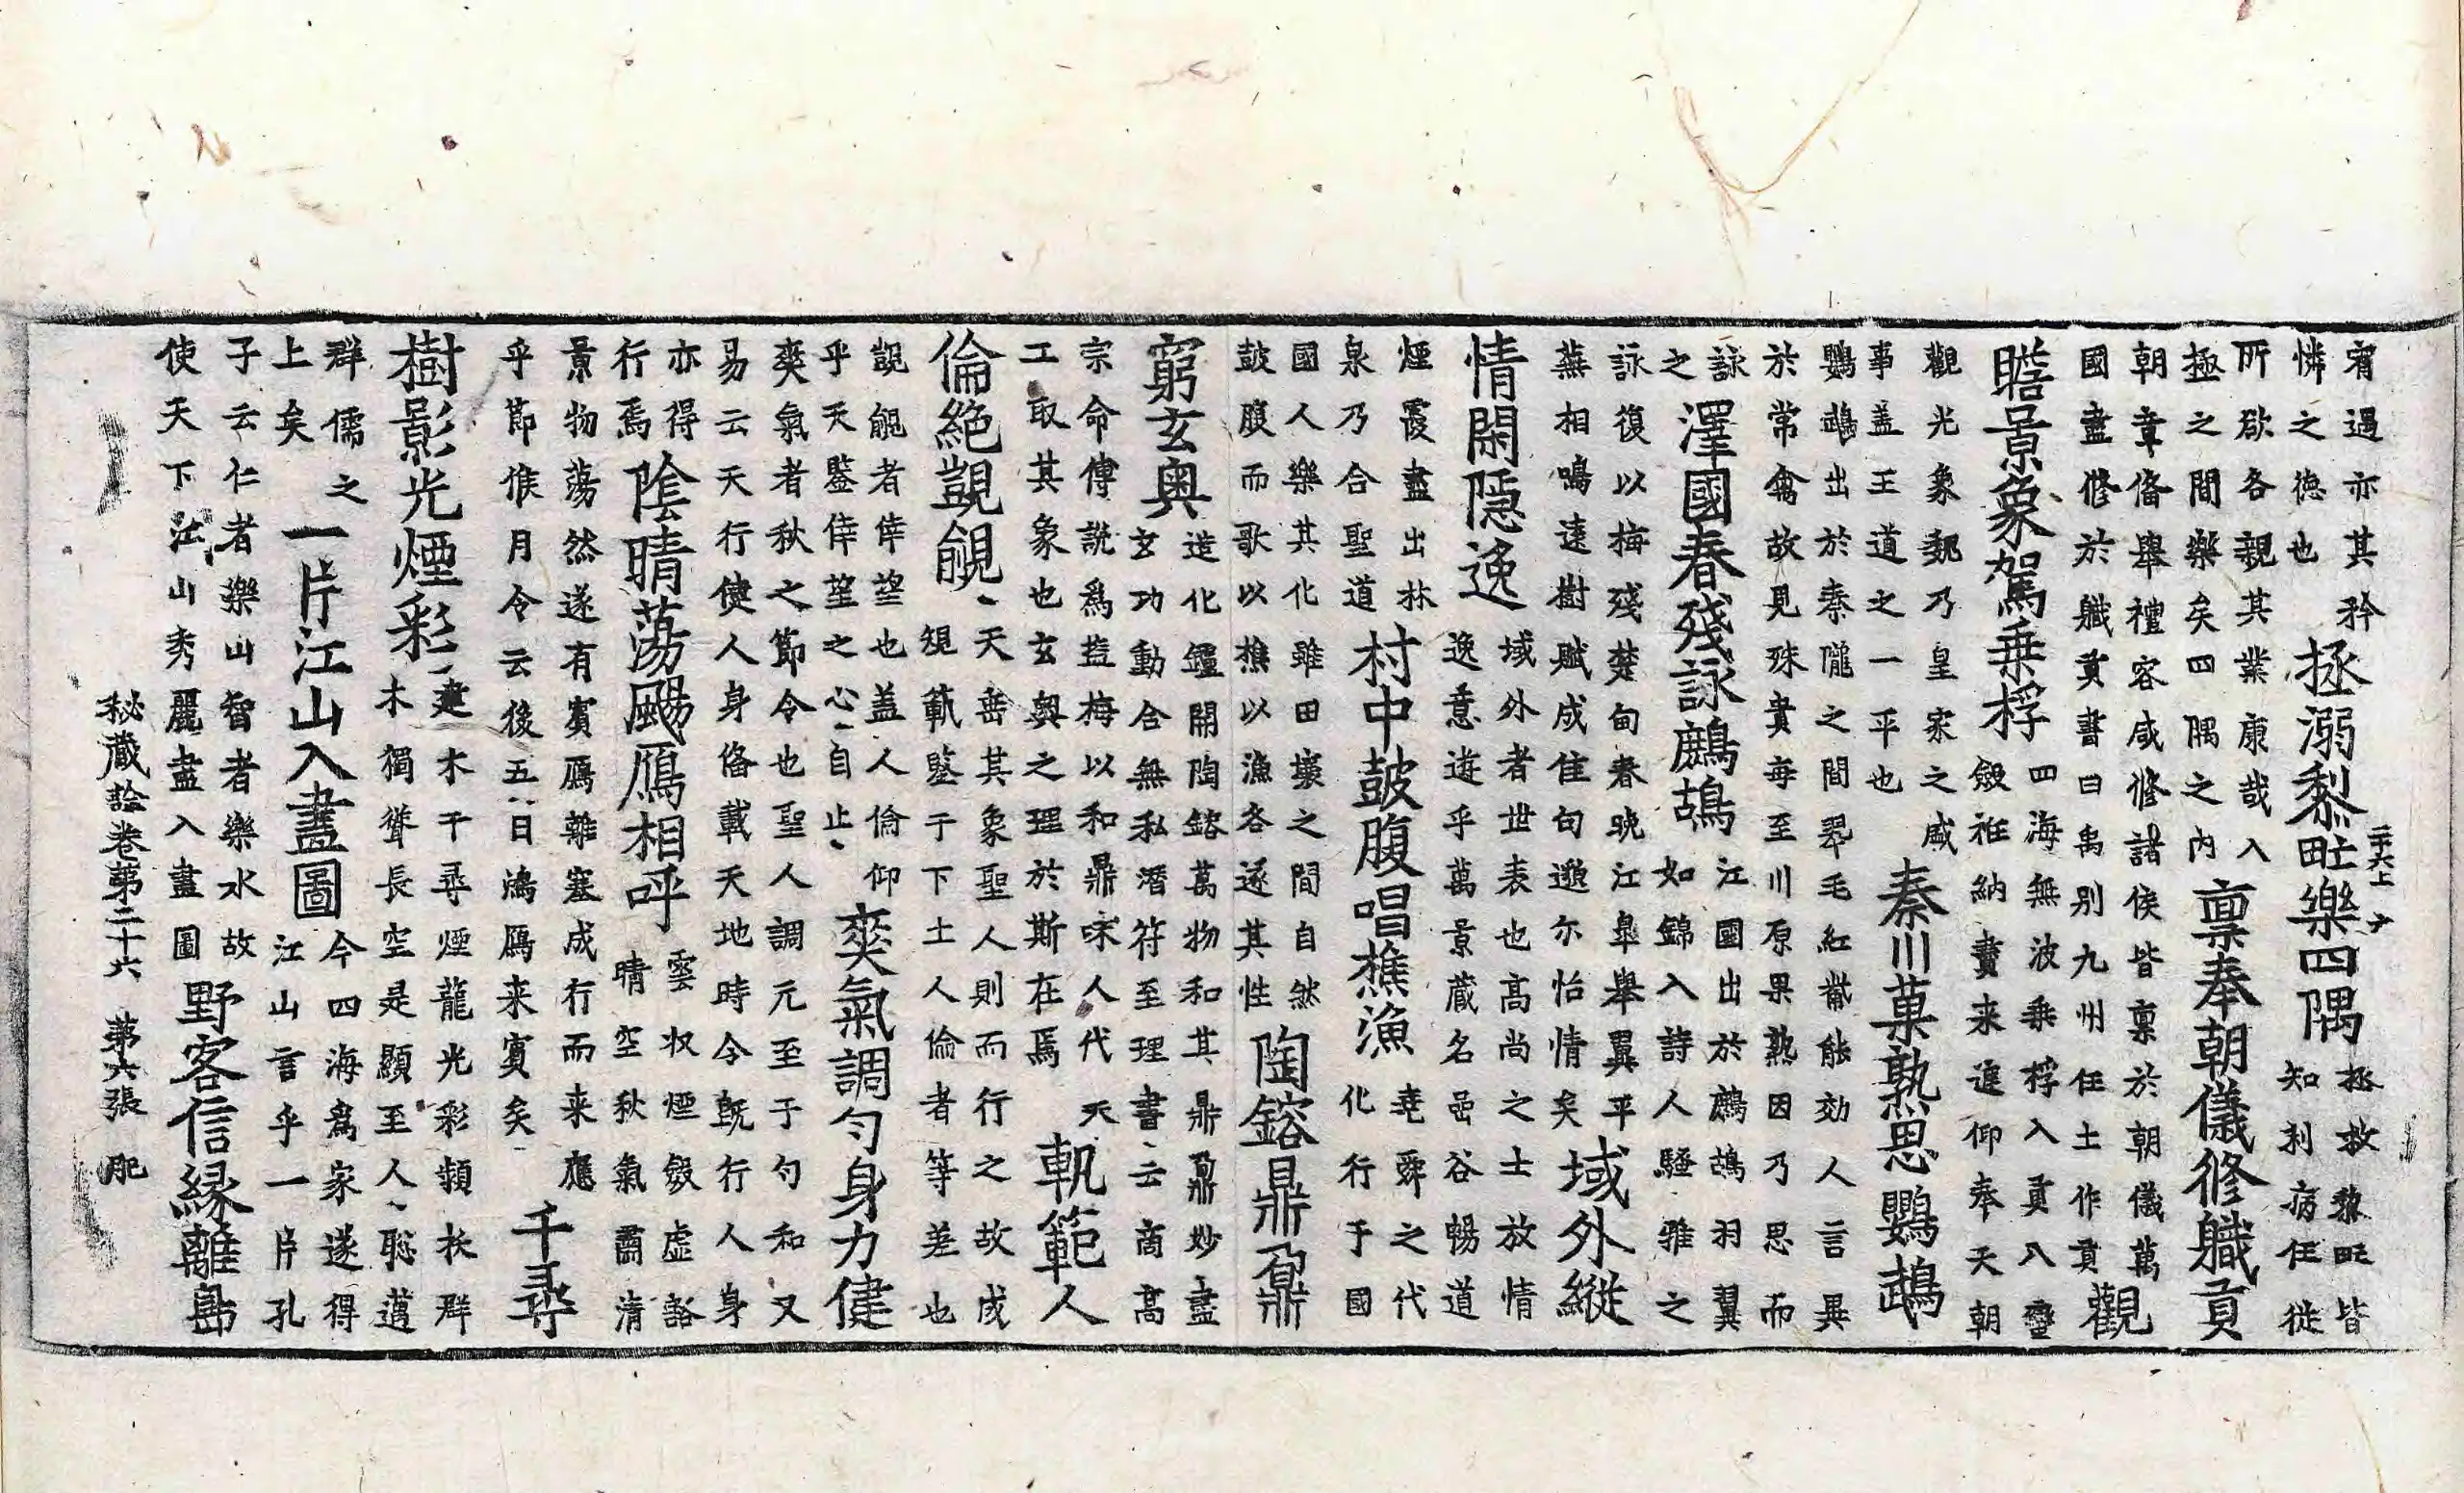 宥過亦其矜
憐之德也
拯溺黎甿樂四隅
拯救黎甿皆
知利病任従
所欲各親其業康哉入
極之間樂矣四隅之内
稟奉朝儀修軄貢
朝章俻舉禮容咸修諸侯皆稟於朝儀萬
國盡修於軄貢書曰禹別九州任土作貢
觀
瞻景象駕乗桴
四海無波乗桴入貢入
袵納賮来進仰奉天朝
觀光象魏乃皇家之威
事盖王道之一平也
秦川菓熟思鸚鵡
鸚鵡出於秦隴之間翠毛紅觜能効人言異
於常禽故見殊貴每至川原果熟因乃思而
詠
之
澤國春殘詠鷓鴣
江國出於鷓鴣羽翼
如錦入詩人騷雅之
詠復以梅殘楚甸春晩江皐舉翼平
蕪相鳴遠樹賦成佳句邀尓怡情矣
域外縱
情閑隱逸
域外者世表也高尚之士放情
逸意遊乎萬景蔵名嵒谷暢道
煙霞盡出林
泉乃合聖道
村中鼓腹唱樵漁
堯舜之代
化行于國
國人樂其化雖田壤之間自然
鼓腹而歌以樵以漁各逐其性
陶鎔鼎鼐
窮玄奥
造化鑪開陶鎔萬物和其鼎鼐妙盡
玄功動合無私潛符至理書云商高
宗命傳說爲塩梅以和鼎味人代天
工取其象也玄奥之理於斯在焉
軌範人
倫絶覬覦
天垂其象聖人則而行之故成
規軌鑒于下土人倫者等差也
覬覦者倖望也盖人倫仰
乎天鑒倖望之心自止
爽氣調勻身力健
爽氣者秋之節令也聖人調元至于勻和又
易云天行健人身俻載天地時令旣行人身
亦得
行焉
陰晴蕩颺鴈相呼
雲収煙劔虛豁
晴空秋氣肅清
景物蕩然遂有賓鴈離塞成行而来應
乎節候月令云後五日鴻鴈来賓矣
千尋
樹影光煙彩
建木千尋煙蘢光彩頻扶群
木獨聳長空是顯至人聡邁
群儒之
上矣
一片江山入畫圖
今四海爲家遂得
江山言乎一片孔
子云仁者樂山智者樂水故
使天下江山秀麗盡入畫圖
野客信縁離島
秘藏詮卷第二十六 第六張 肥
二十六上